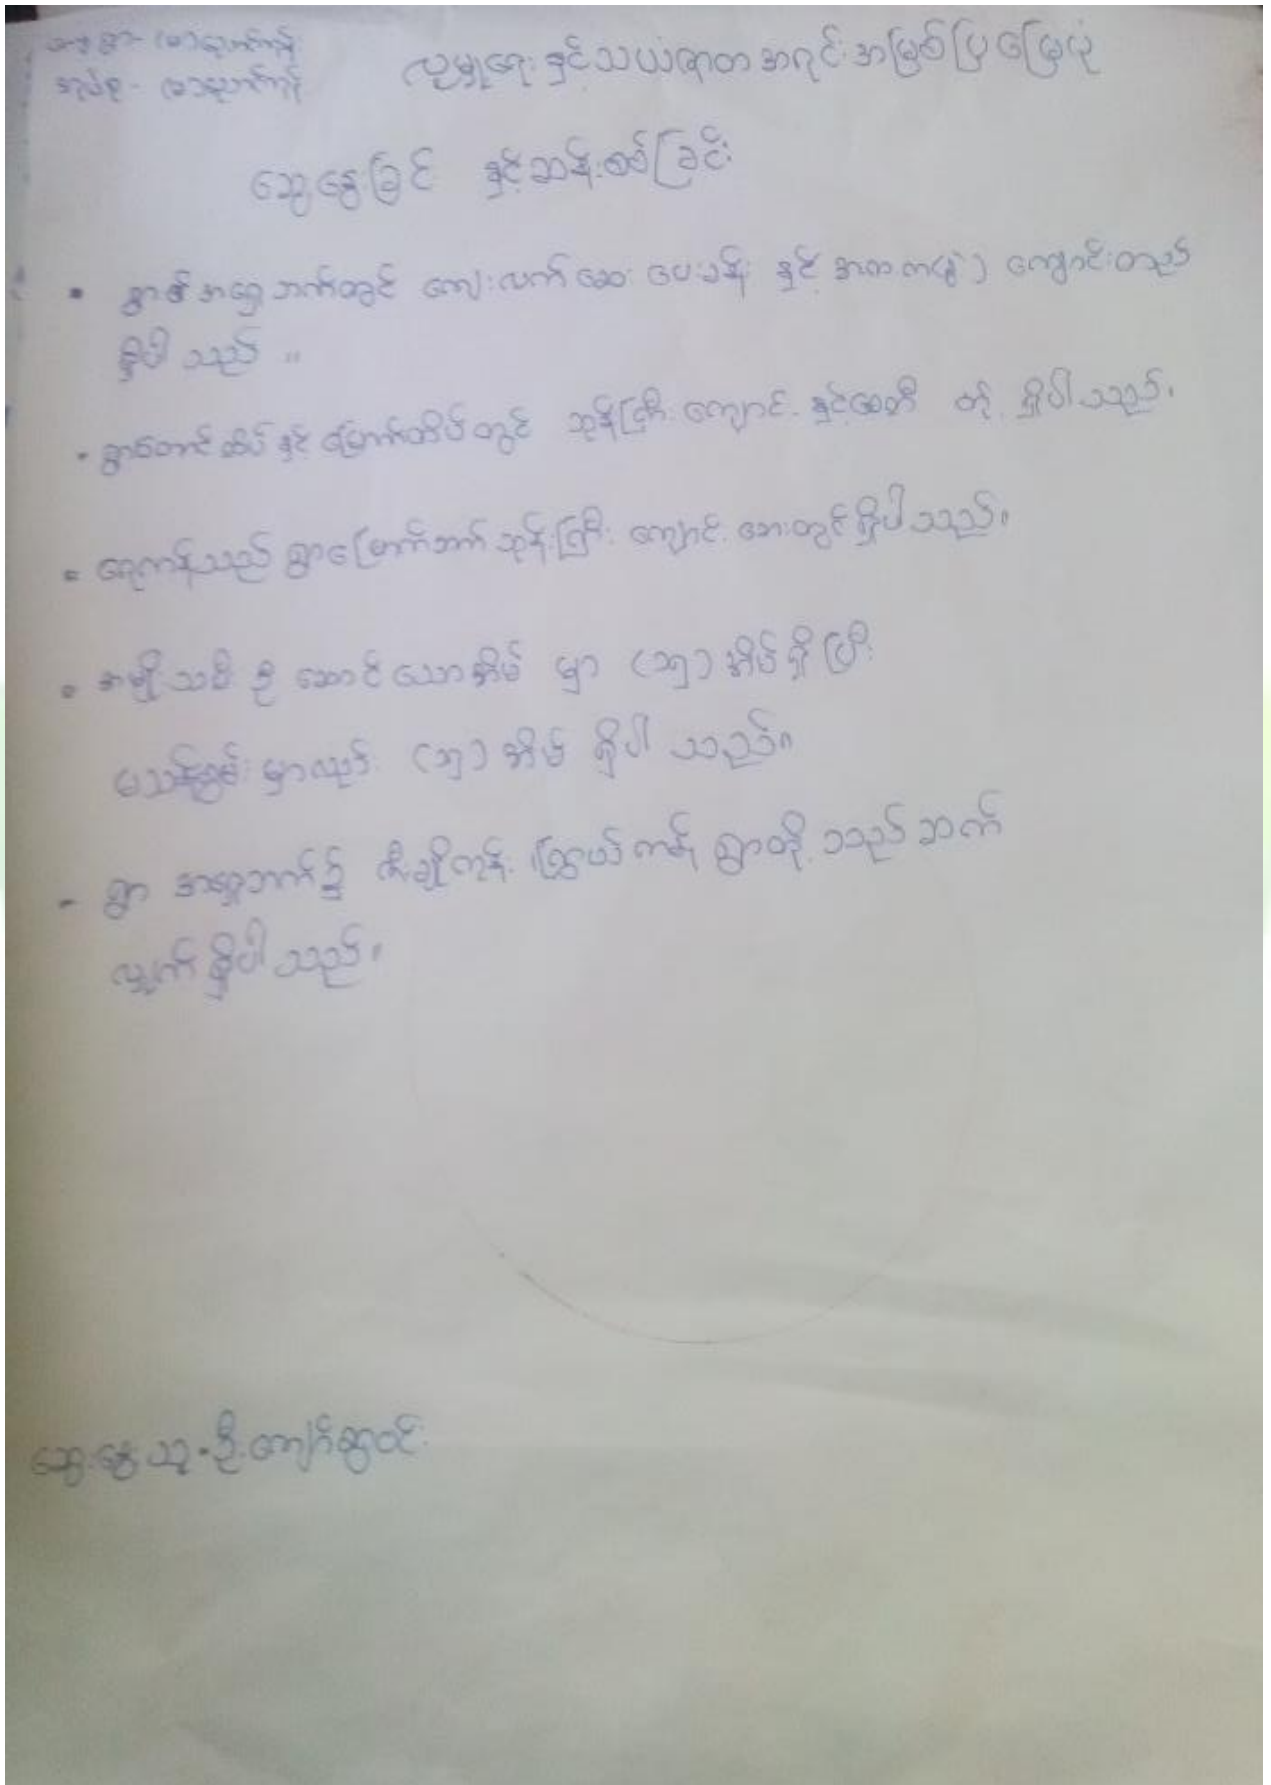 ကျေးရွာ-
အုပ်စု -
လူမှုရေးနှင့်သယံဇာတအရင်းအမြစ်ပြမြေပုံ
ဆွေးနွေးခြင် နှင့်ဆန်းစစ်ခြင်း
• ရွာ၏အရှေ့ဘက်တွင် ကျေးလက်ဆေးပေးခန်း နှင့် အကက(ခွဲ) ကျောင်းတည်
ရှိပါသည် ။
• ရွာတောင်ထိပ်နှင့် မြောက်ထိပ်တွင် ဘုန်းကြီးကျောင်းနှင့်စေတီ တို့ ရှိပါသည်။
• ရေကန်သည် ရွာမြောက်ဘက်ဘုန်းကြီးကျောင်းဘေးတွင်ရှိပါသည်။
• အမျိုးသမီးဦးဆောင်သောအိမ် မှာ (၁၅) အိမ်ရှိပြီး
မသန်စွမ်းမှာလည်း (၁၅) အိမ် ရှိပါသည်။
- ရွာ အရှေ့ဘက်၌ ဇီးချိုကုန်း ကြွယ်ကန် ရွာတို့ သည်ဆက်
လျှက် ရှိပါသည်။
ဆွေးနွေးသူ - ဦးကျော်ဆွဝင်း